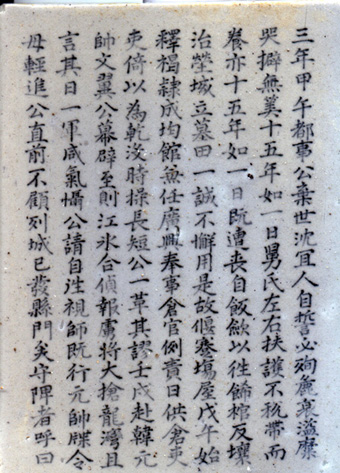 三年甲午都事公棄世沈宜人自誓必殉麁衰澁縻
哭擗無奠十五年如一日舅氏左右扶護不梲帶而
眷亦十五年如一日旣遭丧自飯歛以徃餙棺反壤
治塋域立墓田一誠不懈用是故偃蹇塲屋戊午始
釋褐隷成均館兼任廣興奉事倉官例責日供倉吏
吏倚以為乾没時操長短公一革其謬壬戌赴韓元
帥文翼公幕辟至則江氷合偵報虜將大搶龍灣且
言其日一軍咸氣慴公請自徃視師旣行元帥牒令
毋輕進公直前不顧列城已發縣門矣守陴者呼曰